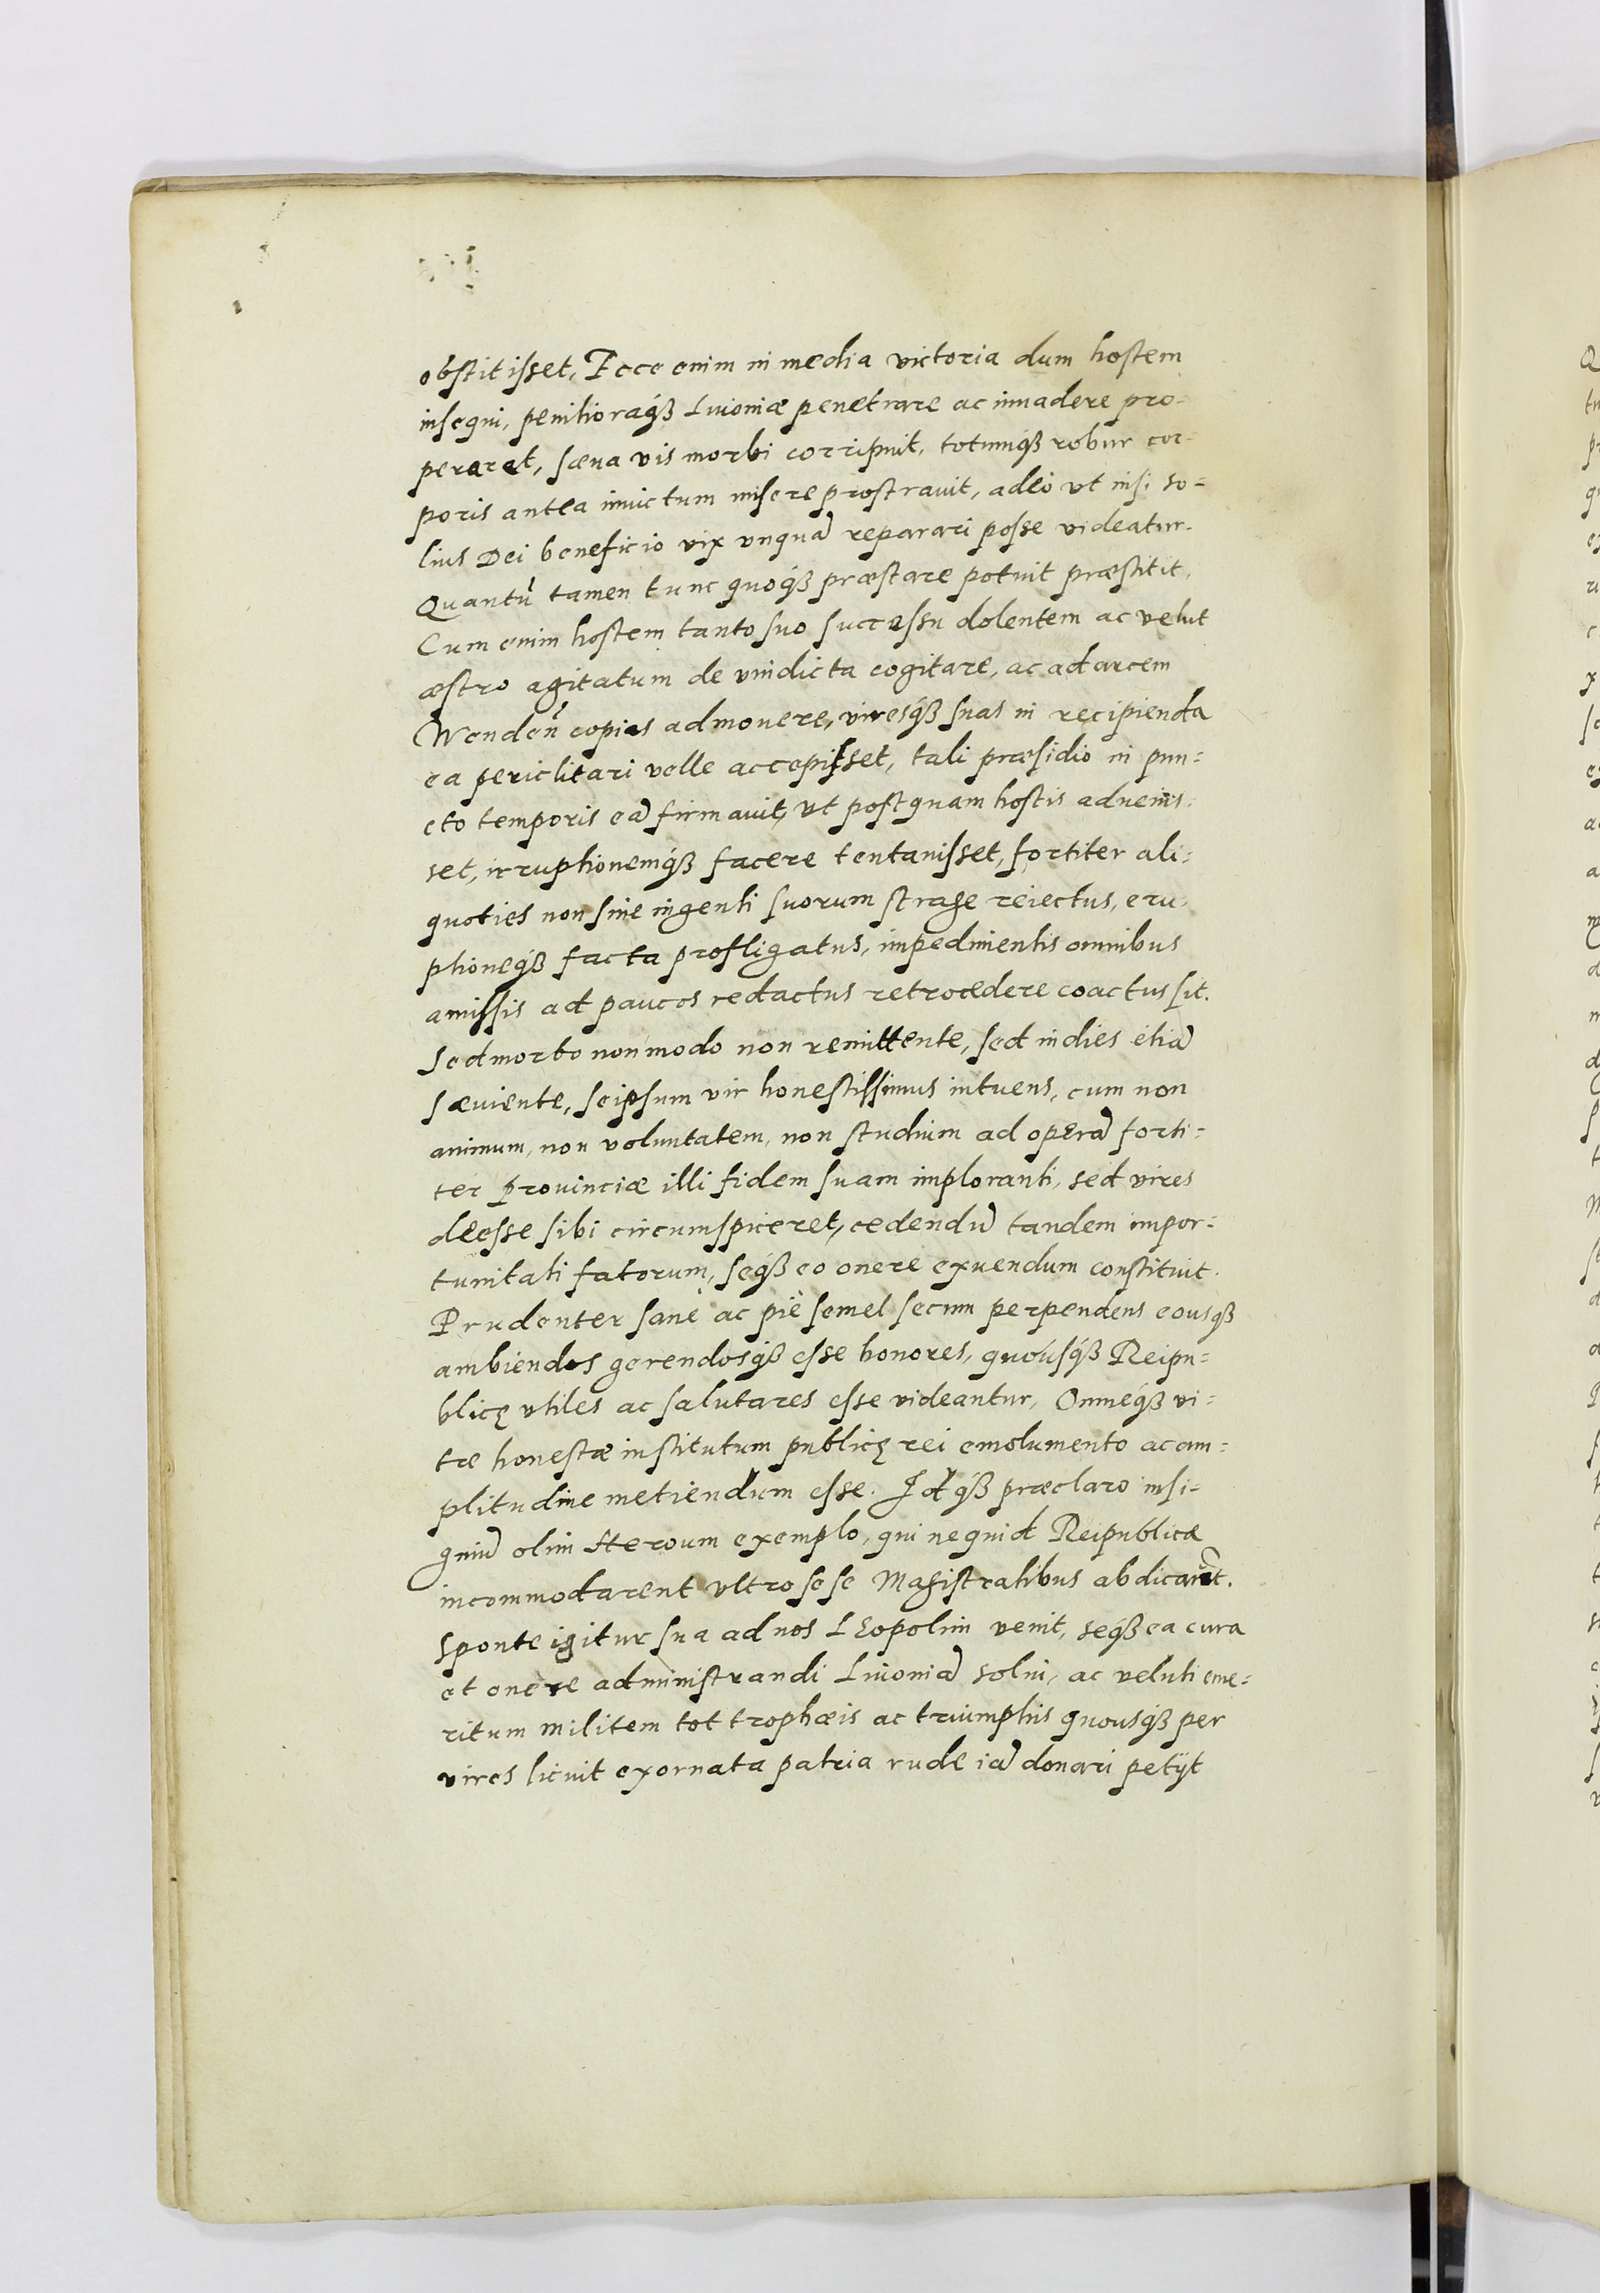 obstitisset, Ecce enim in media victoria dum hostem
insequi, penitioraq́ꝫ Liuoniæ penetrare ac inuadere pro-
peraret, sæua vis morbi corripuit, totumq́ꝫ robur cor-
poris antea inuictum misere prostrauit, adeò vt nisi so-
lius Dei beneficio vix vnquã reparari posse videatur.
Quantũ tamen tunc quoq́ꝫ præstare potuit præstitit,
Cum enim hostem tanto suo successu dolentem ac velut
æstro agitatum de vindicta cogitare, ac ad arcem
Wendeñ copias admouere, viresq́ꝫ suas in recipienda
ea periclitari velle accepisset, tali præsidio in pun-
cto temporis eã firmauit, vt postquam hostis aduenis-
set, irruptionemq́ꝫ facere tentauisset, fortiter ali-
quoties non sine ingenti suorum strage reiectus, eru-
ptioneq́ꝫ facta profligatus, impedimentis omnibus
amissis ad paucos redactus retrocedere coactus sit.
Sed morbo non modo non remittente, sed indies etiã
sæuiente, seipsum vir honestissimus intuens, cum non
animum, non voluntatem, non studium ad operã forti-
ter Prouinciæ illi fidem suam imploranti, sed vires
deesse sibi circumspiceret, cedendũ tandem impor-
tunitati fatorum, seq́ꝫ eo onere exuendum constituit.
Prudenter sanè ac piè semel secum perpendens eousq́ꝫ
ambiendos gerendosq́ꝫ esse honores, quoúsq́ꝫ Reipu-
blicę vtiles ac salutares esse videantur, Omneq́ꝫ vi-
tæ honestæ institutum publicę rei emolumento ac am-
plitudine metiendum esse. Idq́ꝫ præclaro insi-
gniũ olim Heroum exemplo, qui nequid Reipublicæ
incommodarent vltro sese Magistratibus abdicarũt.
Sponte igitur sua ad nos Leopolim venit, seq́ꝫ ea cura
et onere administrandi Liuoniã solui, ac veluti eme-
ritum militem tot trophæis ac triumphis quousq́ꝫ per
vires licuit exornata patria rude iã donari petijt